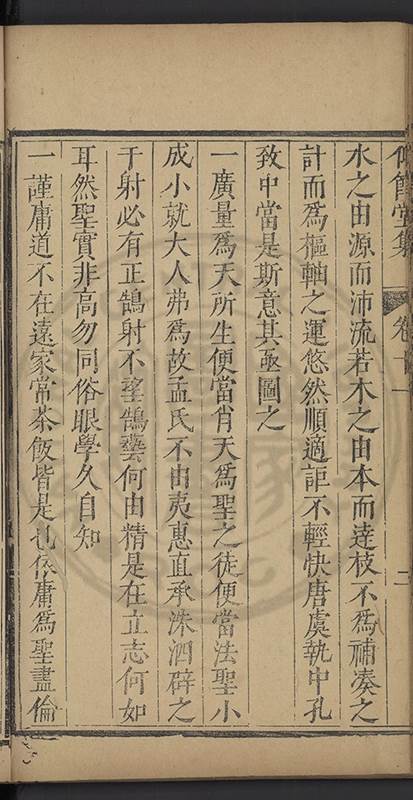 仰節堂集 卷十一 二
水之由源而沛流若木之由本而達枝不為補湊之
計而為樞軸之運悠然順適詎不輕快唐虞執中孔
致中當是斯意其亟圖之
一廣量為天所生便當肖天為聖之徒便當法聖小
成小就大人弗為故孟氏不由夷惠直承洙泗辟之
于射必有正鵠射不望鵠藝何由精是在立志何如
耳然聖實非高勿同俗眼學久自知
一謹庸道不在遠家常茶飯皆是也依庸為聖盡倫